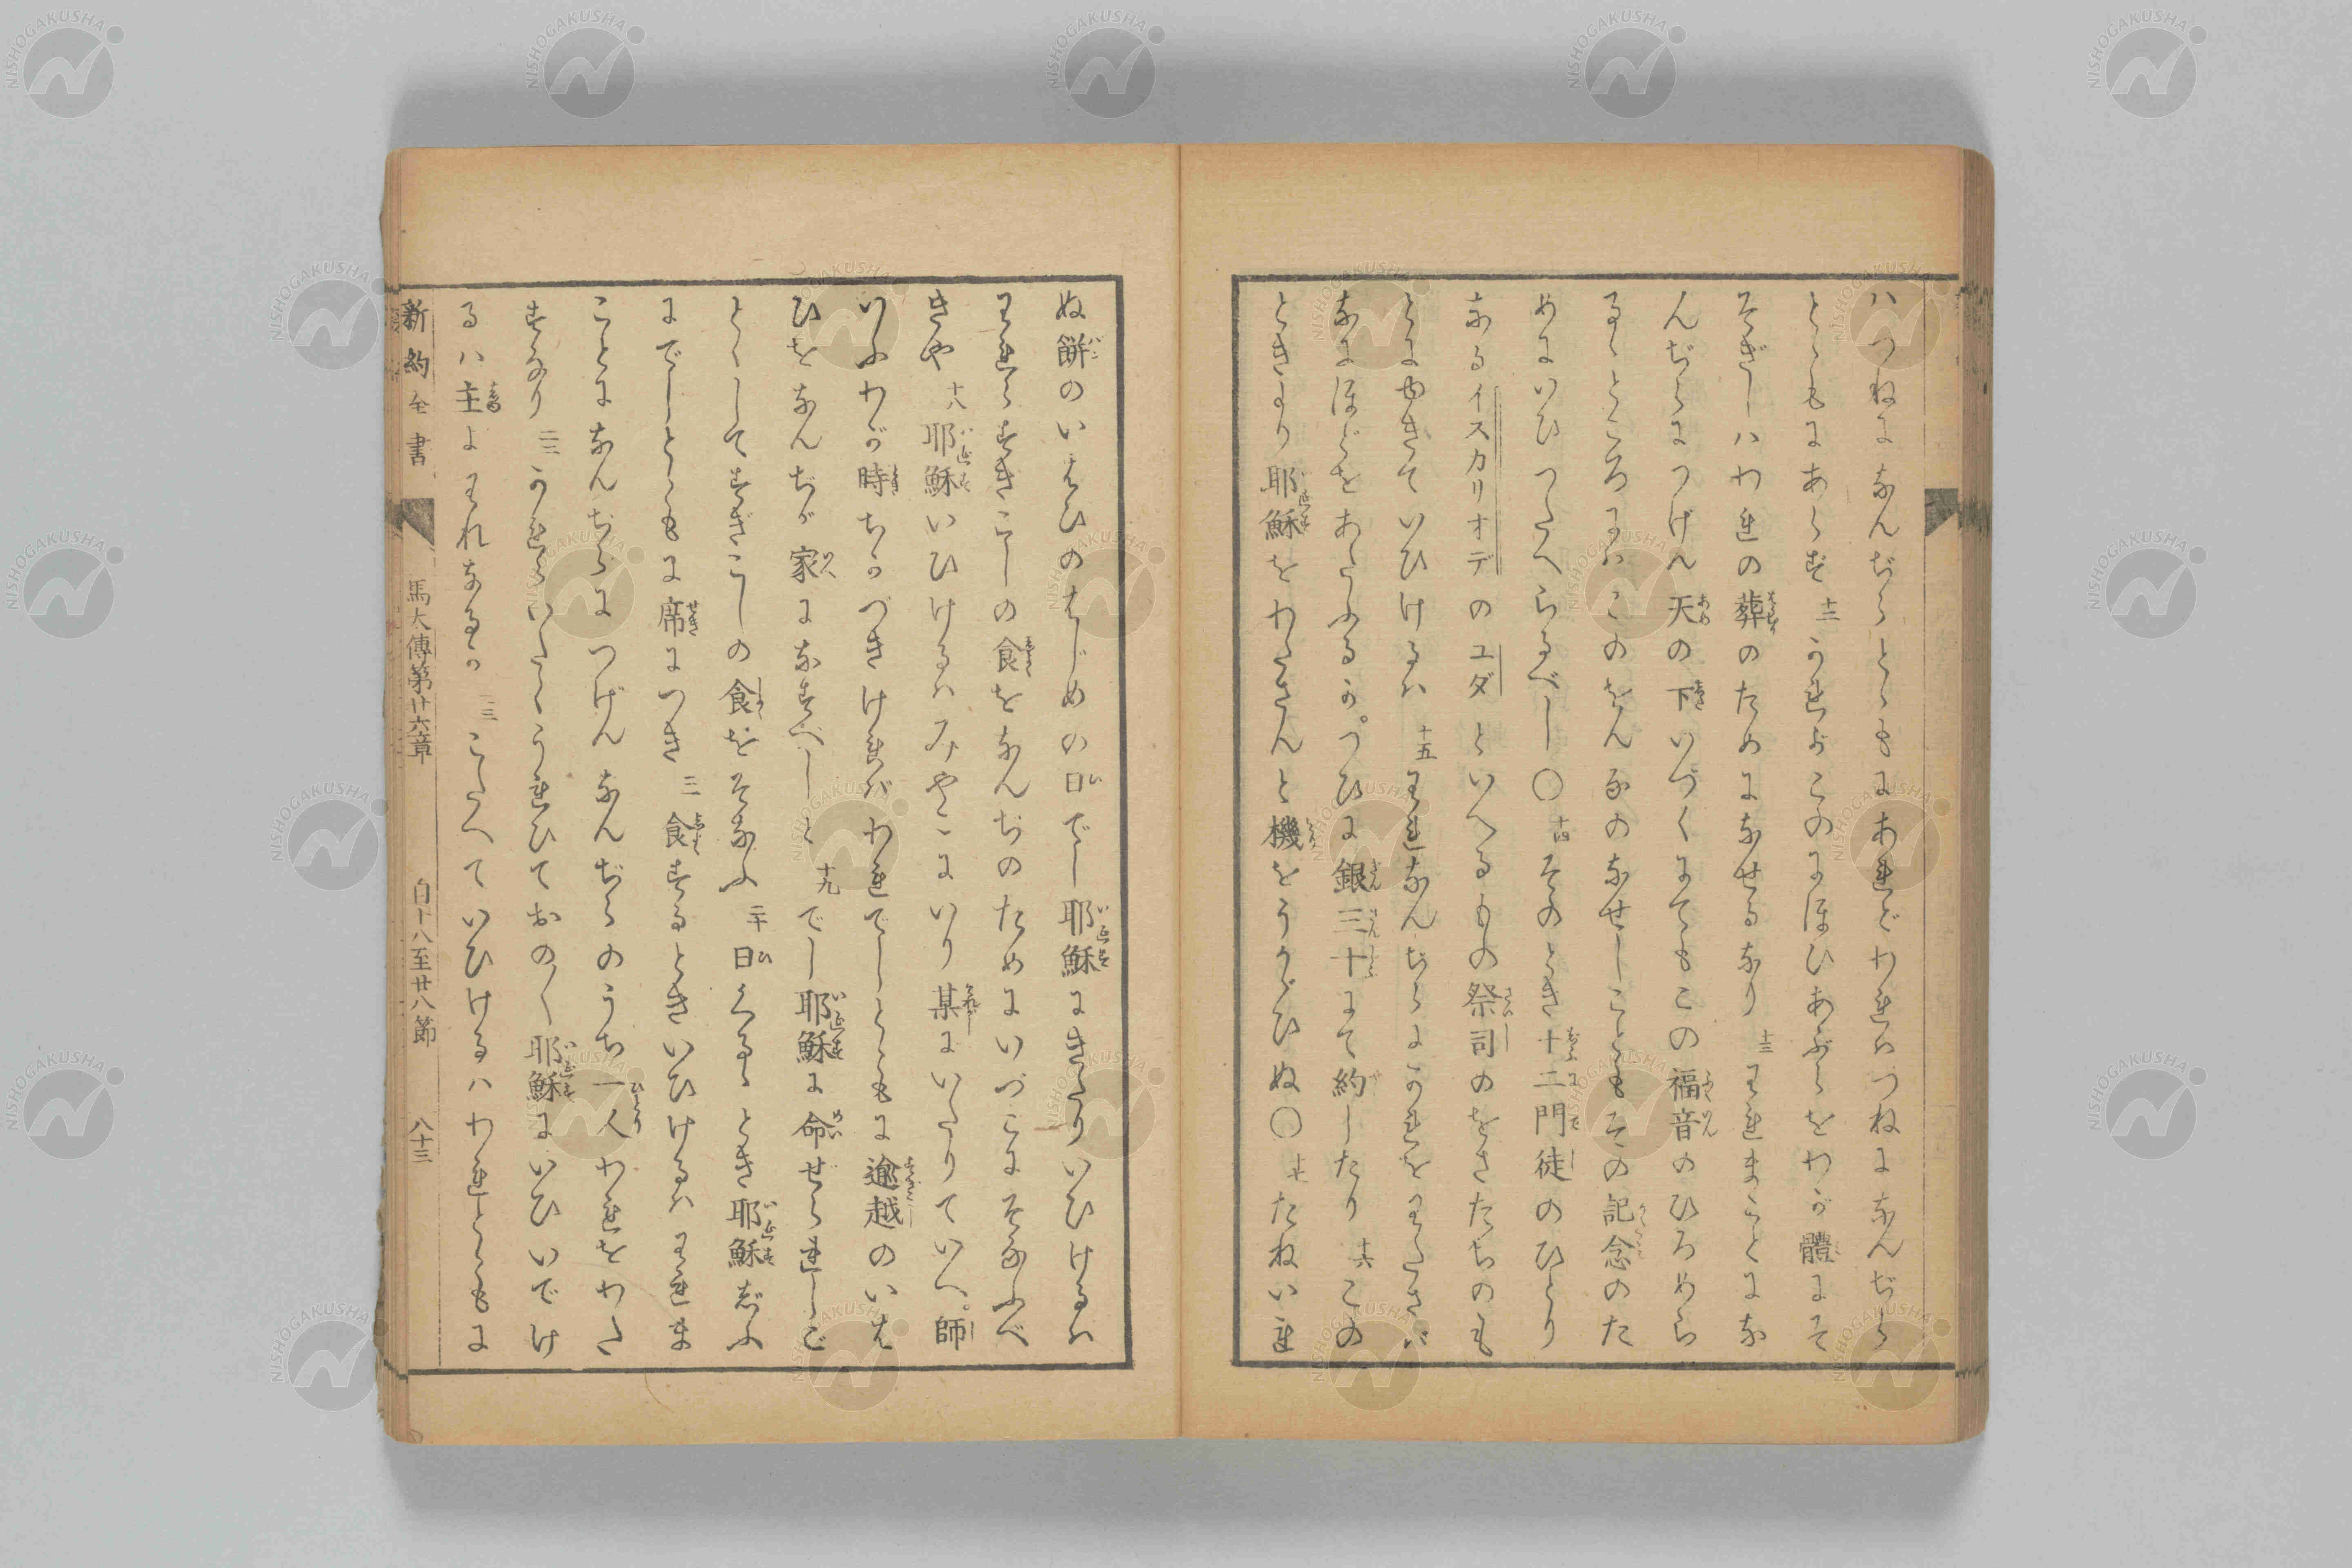 ハつねになんぢらとゝもにあれどわれハつねになんぢら
とゝもにあらず 十二 かれがこのにほひあぶらをわが體にそ
そぎしハわれの葬のためになせるなり 十三 われまことにな
んぢらにつげん天の下いづくにてもこの福音のひろめら
るゝところにハこのをんなのなせしこともその記念のた
めにいひつたへらるべし〇 十四 そのとき十二門徒のひとり
なるイスカリオデのユダといへるもの祭司のをさたちのも
とにゆきていひけるハ 十五 われなんぢらにかれをわたさバ
なにほどをあたふるか。つひに銀三十にて約したり 十六 この
ときより耶穌をわたさんと機をうかゞひぬ〇 十七 たねいれ
ぬ餅のいはひのはじめの日でし耶穌にきたりいひけるハ
われらすぎこしの食をなんぢのためにいづこにそなふべ
きや 十八 耶穌いひけるハみやこにいり某にいたりていへ。師
いふわが時ちかづきけれバわれでしとゝもに逾越のいは
ひをなんぢが家になすべしと 十九 でし耶穌に命ぜられしご
とくしてすぎこしの食をそなふ 二十 日くるゝとき耶穌じふ
にでしとゝもに席につき 二一 食するときいひけるハわれま
ことになんぢらにつげんなんぢらのうち一人われをわた
すなり 二二 かれらいたくうれひておの〱耶穌にいひいでけ
るハ主よわれなるか 二三 こたへていひけるハわれとゝもに
新約全書 馬太傳第廿六章 自十八至廿八節 八十三